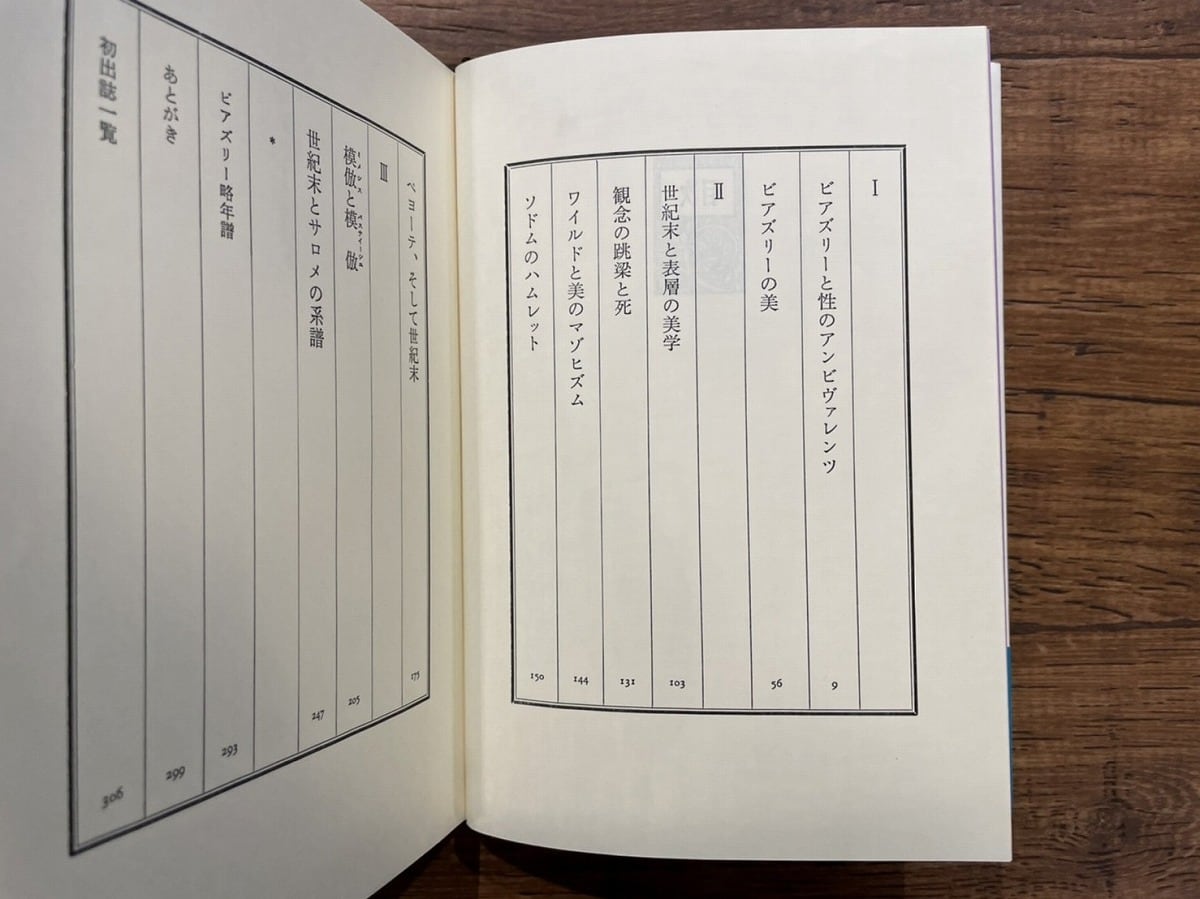 I
ビアズリーと性のアンビヴァレンツ 9
ビアズリーの美 56
II
世紀末と表層の美学 103
観念の跳梁と死 131
ワイルドと美のマゾヒズム 144
ソドムのハムレット 150
ペヨーテ、そして世紀末 175
III
模倣と模倣 205
世紀末とサロメの系譜 247
*
ビアズリー略年譜 293
あとがき 299
初出誌一覧 306